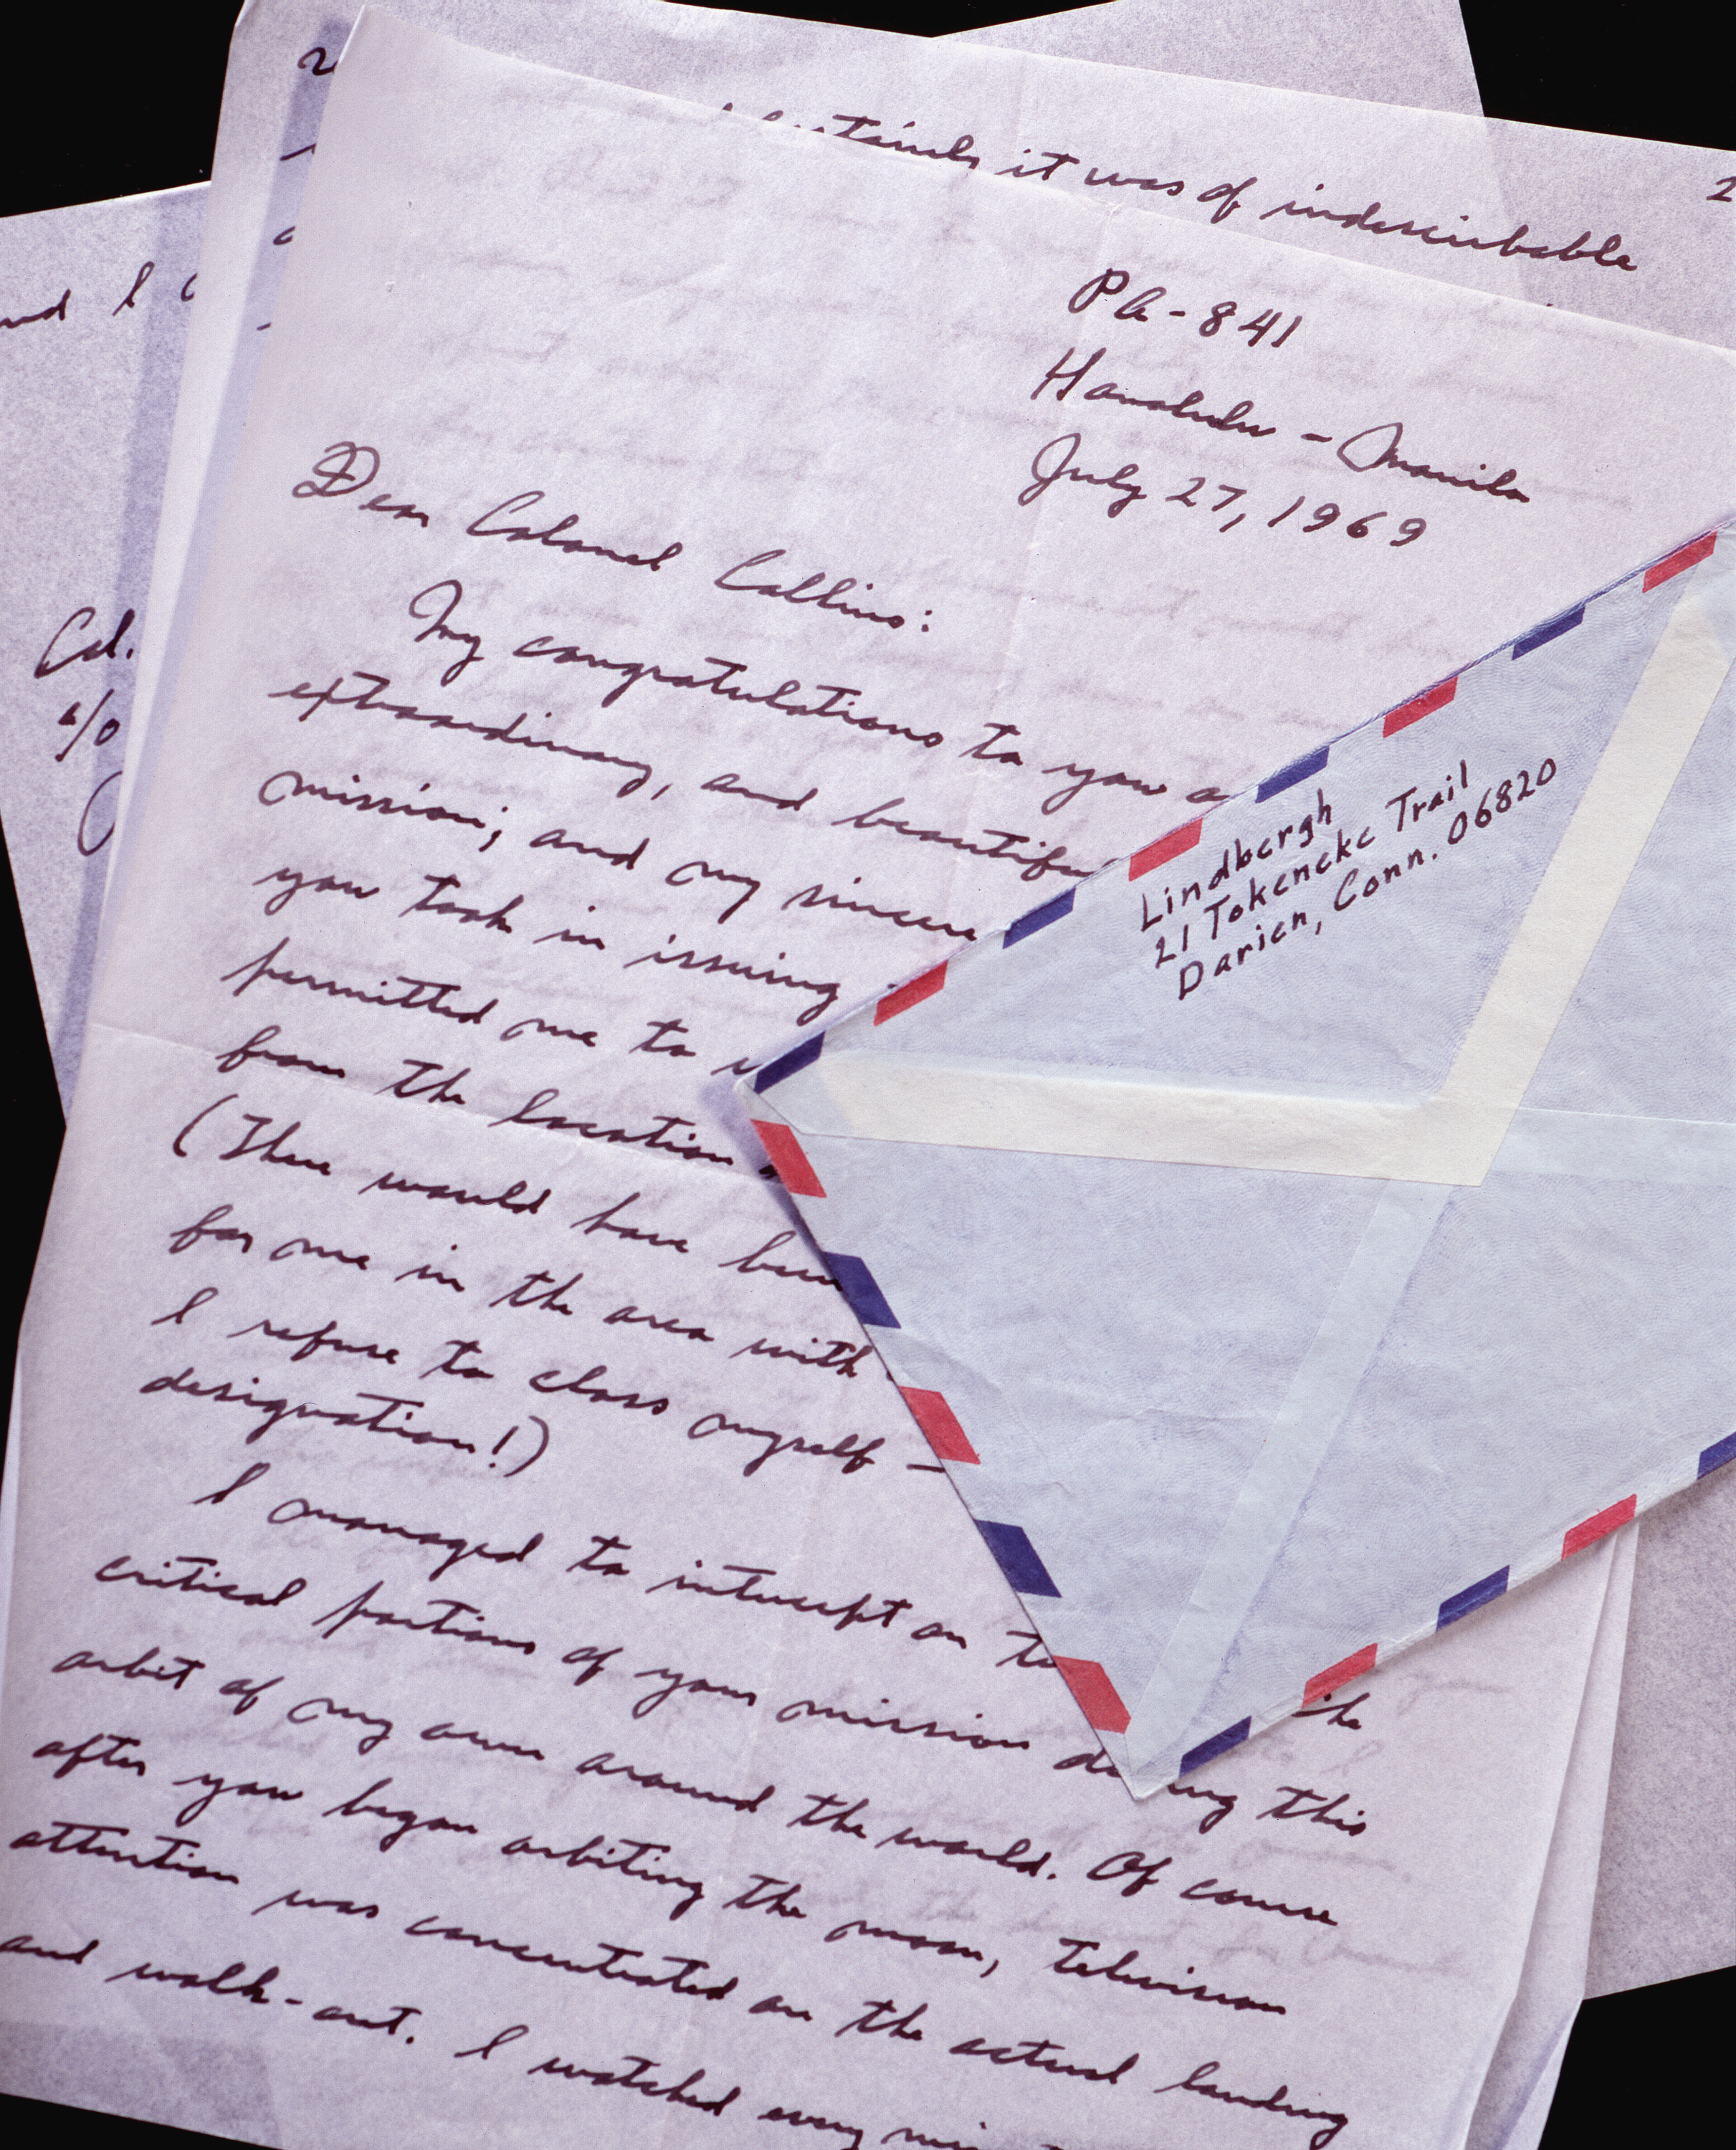 2
certainly it was of indescribable
2
and I
Col.
c/o
PA-841
Honolulu - Manila
July 27, 1969
Dear Colonel Collins:
My congratulations to you
extraordinary, and beautiful
mission; and my sincere
you took in issuing
permitted me to
from the location
(There would have been
for me in the area with
I refuse to class myself —
designation!)
I managed to intercept on the
critical portions of your mission during this
orbit of my own around the world. Of course
after you began orbiting the moon, television
attention was concentrated on the actual landing
and walk-out. I watched every
Lindbergh
21 Tokeneke Trail
Darien, Conn. 06820